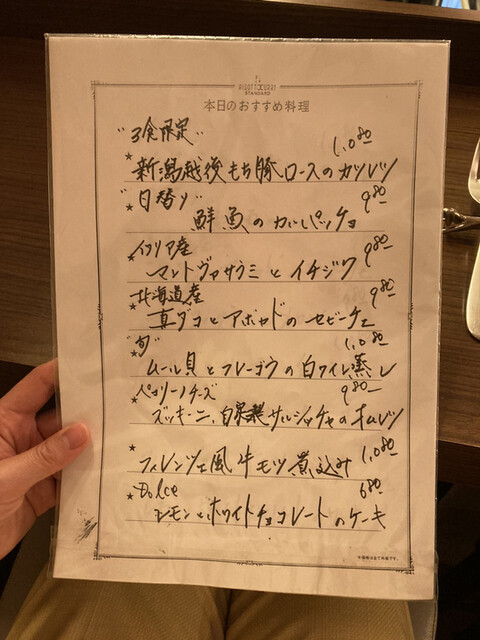 STANDARD
本日のおすすめ料理
"3食限定"
1,080
★新潟越後もち豚ロースのカツレツ
"日替り"
980-
★鮮魚のカルパッチョ
イタリア産
980-
★マントヴァサラミとイチジク
北海道産
980-
★真ダコとアボカドのセビーチェ
"旬"
1,080-
★ムール貝とフレーゴラの白ワイン蒸し
ペコリーノチーズ
980-
★ズッキーニ、自家製サルシッチャのオムレツ
★フィレンツェ風牛モツ煮込み 1,080-
★Dolce
680-
レモンとホワイトチョコレートのケーキ
※価格は全て外税です。